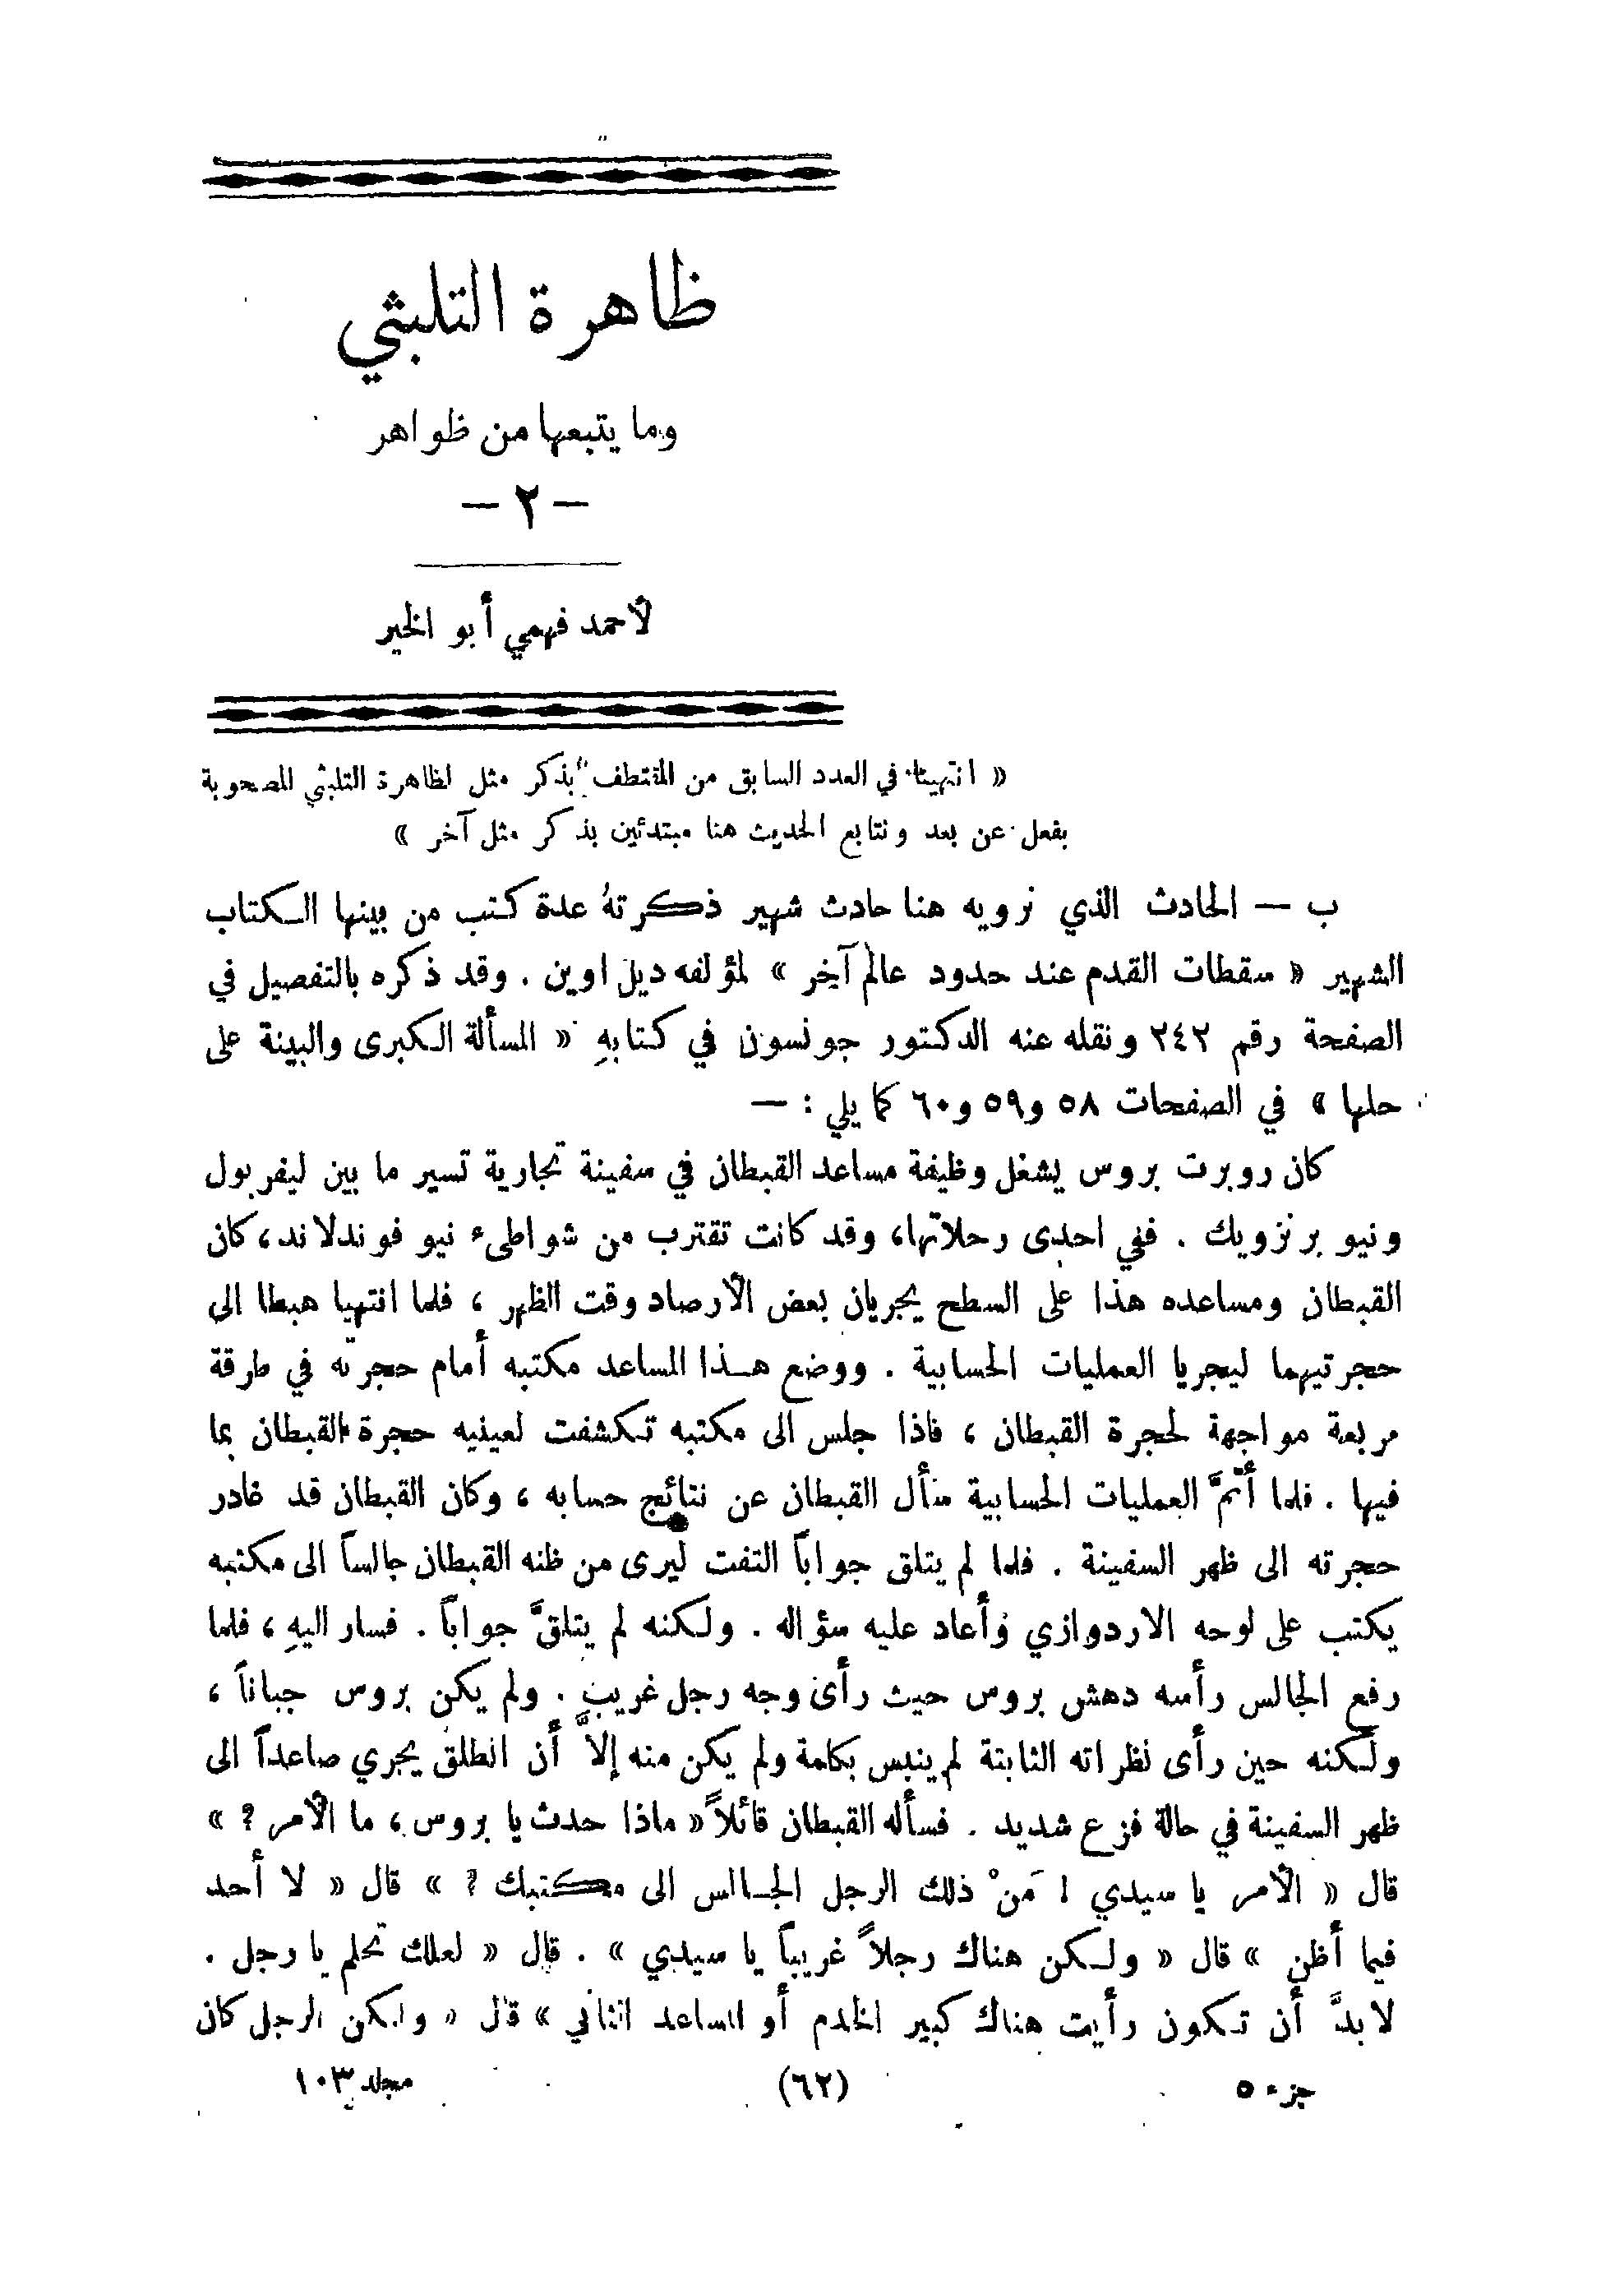 ظاهرة التلبثي
وما يتبعها من ظواهر
— ٢ —
لأحمد فهمي أبو الخير
« انتهينا في العدد السابق من المقتطف بذكر مثل لظاهرة التلبثي المصحوبة
بفعل عن بعد ونتابع الحديث هنا مبتدئين بذكر مثل آخر »
ب — الحادث الذي نرويه هنا حادث شهير ذكرتهُ عدة كتب من بينها الكتاب
الشهير « سقطات القدم عند حدود عالم آخر » لمؤلفه ديل اوين . وقد ذكره بالتفصيل في
الصفحة رقم ٢٤٢ ونقله عنه الدكتور جونسون في كتابهِ « المسألة الكبرى والبينة على
حلها » في الصفحات ٥٨ و٥٩ و٦٠ كما يلي : —
كان روبرت بروس يشغل وظيفة مساعد القبطان في سفينة تجارية تسير ما بين ليفربول
ونيو برنزويك . ففي احدى رحلاتها، وقد كانت تقترب من شواطىء نيو فوندلاند، كان
القبطان ومساعده هذا على السطح يجريان بعض الأرصاد وقت الظهر ، فلما انتهيا هبطا الى
حجرتيهما ليجريا العمليات الحسابية . ووضع هذا المساعد مكتبه أمام حجرته في طرقة
مربعة مواجهة لحجرة القبطان ، فاذا جلس الى مكتبه تكشفت لعينيه حجرة القبطان بما
فيها . فلما أتمَّ العمليات الحسابية سأل القبطان عن نتائج حسابه ، وكان القبطان قد غادر
حجرته الى ظهر السفينة . فلما لم يتلق جواباً التفت ليرى من ظنه القبطان جالساً الى مكتبه
يكتب على لوحه الاردوازي وأعاد عليه سؤاله . ولكنه لم يتلقَّ جواباً . فسار اليهِ ، فلما
رفع الجالس رأسه دهش بروس حيث رأى وجه رجل غريب . ولم يكن بروس جباناً ،
ولكنه حين رأى نظراته الثابتة لم ينبس بكلمة ولم يكن منه إلاَّ أن انطلق يجري صاعداً الى
ظهر السفينة في حالة فزع شديد . فسأله القبطان قائلاً « ماذا حدث يا بروس ، ما الأمر ؟ »
قال « الأمر يا سيدي ! مَنْ ذلك الرجل الجالس الى مكتبك ؟ » قال « لا أحد
فيما أظن » قال « ولكن هناك رجلاً غريباً يا سيدي » . قال « لعلك تحلم يا رجل .
لا بدَّ أن تكون رأيت هناك كبير الخدم أو المساعد الثاني » قال « ولكن الرجل كان
جزء ٥ (٦٢) مجلد ١٠٣